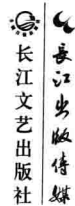 长江文艺出版社
長江出版傳媒